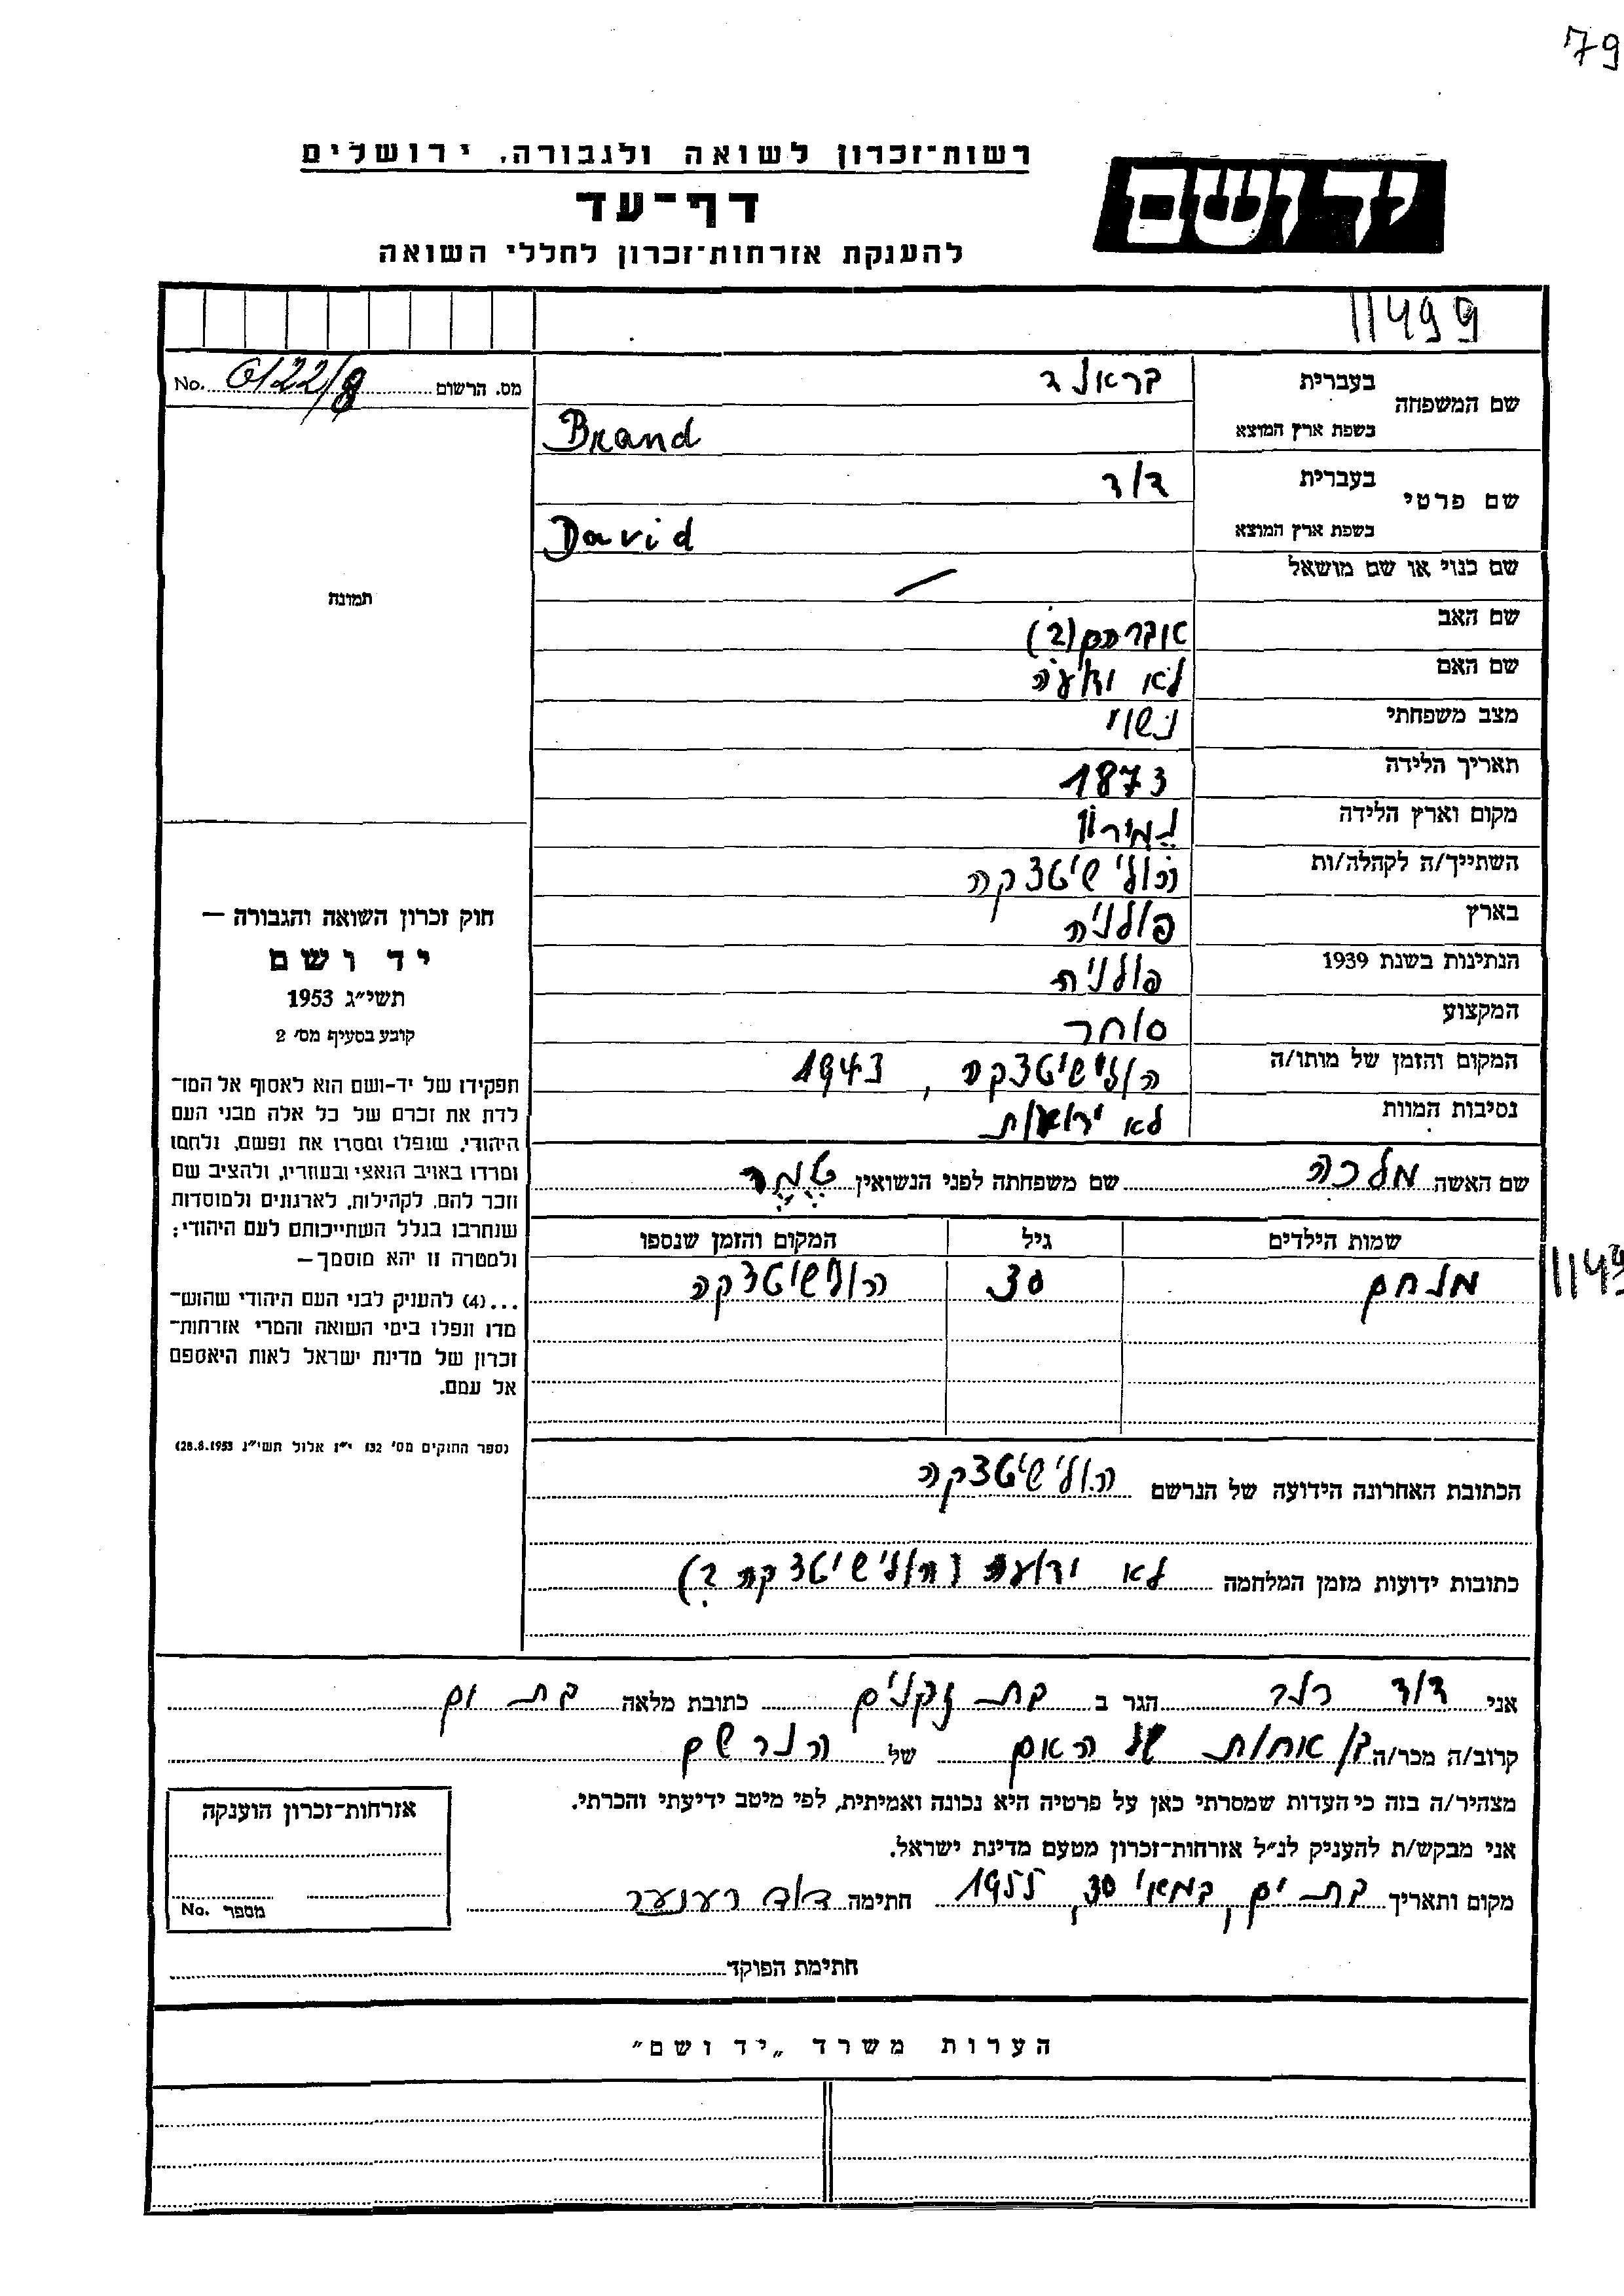 79
רשות־זכרון לשואה ולגבורה, ירושלים
יד ושם
דף־עד
להענקת אזרחות־זכרון לחללי השואה
11499
מס. הרשום 6122/8 No.
שם המשפחה
בעברית בראנד
בשפת ארץ המוצא Brand
שם פרטי
בעברית דוד
בשפת ארץ המוצא David
שם כנוי או שם מושאל —
שם האב אברהם (?)
שם האם לא ידועה
מצב משפחתי נשוי
תאריך הלידה 1873
מקום וארץ הלידה
השתייך/ה לקהלה/ות הולישיטצקה
בארץ פולניה
הנתינות בשנת 1939 פולנית
המקצוע סוחר
המקום והזמן של מותו/ה הולישיטצקה, 1943
נסיבות המוות לא ידועות
תמונה
חוק זכרון השואה והגבורה —
יד ושם
תשי״ג 1953
קובע בסעיף מס׳ 2
תפקידו של יד-ושם הוא לאסוף אל המו־
לדת את זכרם של כל אלה מבני העם
היהודי, שנפלו ומסרו את נפשם, נלחמו
ומרדו באויב הנאצי ובעוזריו, ולהציב שם
וזכר להם, לקהילות, לארגונים ולמוסדות
שנחרבו בגלל השתייכותם לעם היהודי;
ולמטרה זו יהא מוסמך—
...(4) להעניק לבני העם היהודי שהוש־
מדו ונפלו בימי השואה והמרי אזרחות־
זכרון של מדינת ישראל לאות היאספם
אל עמם.
(ספר החוקים מס׳ 132 י״ז אלול תשי״ג 28.8.1953)
שם האשה מלכה שם משפחתה לפני הנשואין
שמות הילדים גיל המקום והזמן שנספו
מנחם 30 הולישיטצקה
1149
הכתובת האחרונה הידועה של הנרשם הולישיטצקה
כתובות ידועות מזמן המלחמה לא ידועות (הולישיטצקה ?)
אני דוד רנר הגר ב בת זקנים כתובת מלאה בת ים
קרוב/ה מכר/ה בן אחות של האם של הנרשם
מצהיר/ה בזה כי העדות שמסרתי כאן על פרטיה היא נכונה ואמיתית, לפי מיטב ידיעתי והכרתי.
אני מבקש/ת להעניק לנ״ל אזרחות־זכרון מטעם מדינת ישראל.
מקום ותאריך בת ים, במאי 30, 1955 חתימה דוד רענער
אזרחות־זכרון הוענקה
מספר No.
חתימת הפוקד
הערות משרד „יד ושם״